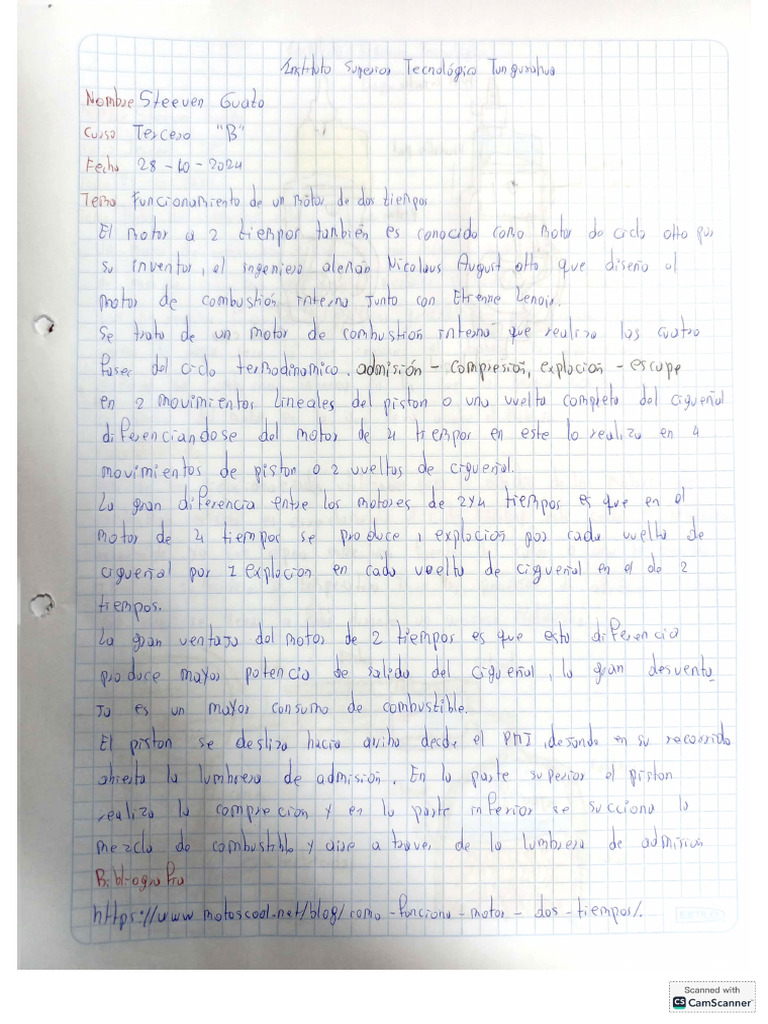 Instituto Superior Tecnológico Tungurahua
Nombre Steeven Guato
Curso Tercero "B"
Fecha 28-10-2024
Tema Funcionamiento de un motor de dos tiempos
El motor a 2 tiempos también es conocido como motor de ciclo otto por
su inventor, el ingeniero alemán Nicolaus August otto que diseño el
motor de combustión interna junto con Etienne Lenoir.
Se trata de un motor de combustión interna que realiza las cuatro
fases del ciclo termodinamico, admisión - compresión, explocion - escape
en 2 movimientos lineales del piston o una vuelta completa del cigueñal
diferenciandose del motor de 4 tiempos en este lo realiza en 4
movimientos de piston o 2 vueltas de cigueñal.
La gran diferencia entre los motores de 2y4 tiempos es que en el
motor de 4 tiempos se produce 1 explocion por cada vuelta de
cigueñal por 1 explocion en cada vuelta de cigueñal en el de 2
tiempos.
La gran ventaja del motor de 2 tiempos es que esta diferencia
produce mayor potencia de salida del cigueñal, la gran desventa
Ja es un mayor consumo de combustible.
El piston se desliza hacia arriba desde el PMI, dejando en su recorrido
abierta la lumbrera de admisión. En la parte superior el piston
realiza la comprecion y en la parte inferior se succiona la
mezcla de combustible y aire a traves de la lumbrera de admision
Bibliografia
https://www.motoscool.net/blog/como-funciona-motor-dos-tiempos/.
Scanned with
CS CamScanner